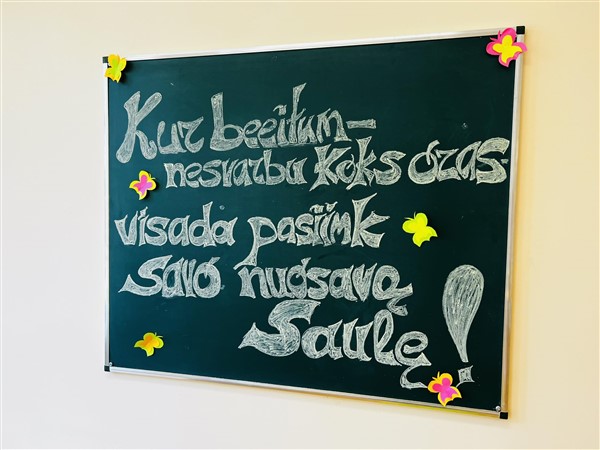 Kur beeitum–
nesvarbu koks oras–
visada pasiimk
savo nuosavą
Saulę!